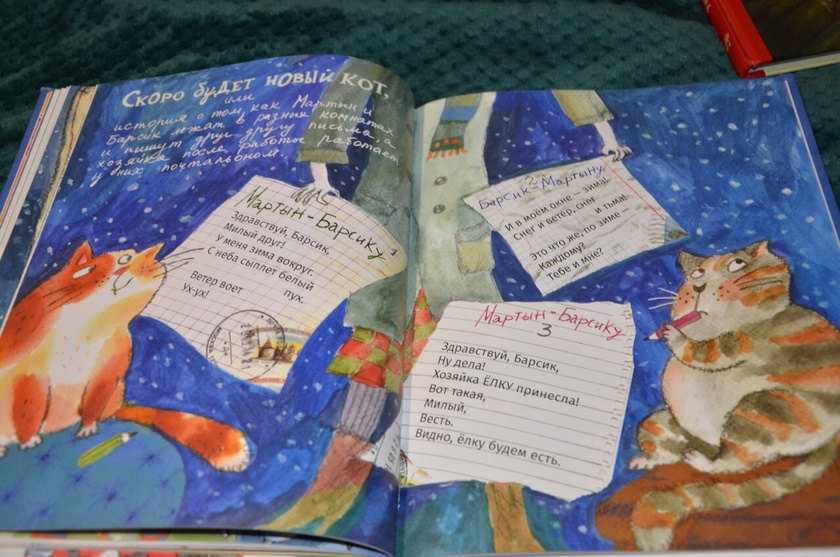 Скоро будет новый кот,
или
история о том, как Мартын и
Барсик лежат в разных комнатах
и пишут друг другу письма, а
хозяйка после работы работает
у них почтальоном.
Мартын-Барсику
1
Здравствуй, Барсик,
Милый друг!
У меня зима вокруг.
С неба сыплет белый
пух.
Ветер воет
Ух-ух!
2
Барсик-Мартыну
И в моём окне – зима!
Снег и ветер, снег
и тьма.
Это что же, по зиме –
Каждому?
Тебе и мне?
Мартын-Барсику
3
Здравствуй, Барсик,
Ну дела!
Хозяйка ЁЛКУ принесла!
Вот такая,
Милый,
Весть.
Видно, ёлку будем есть.